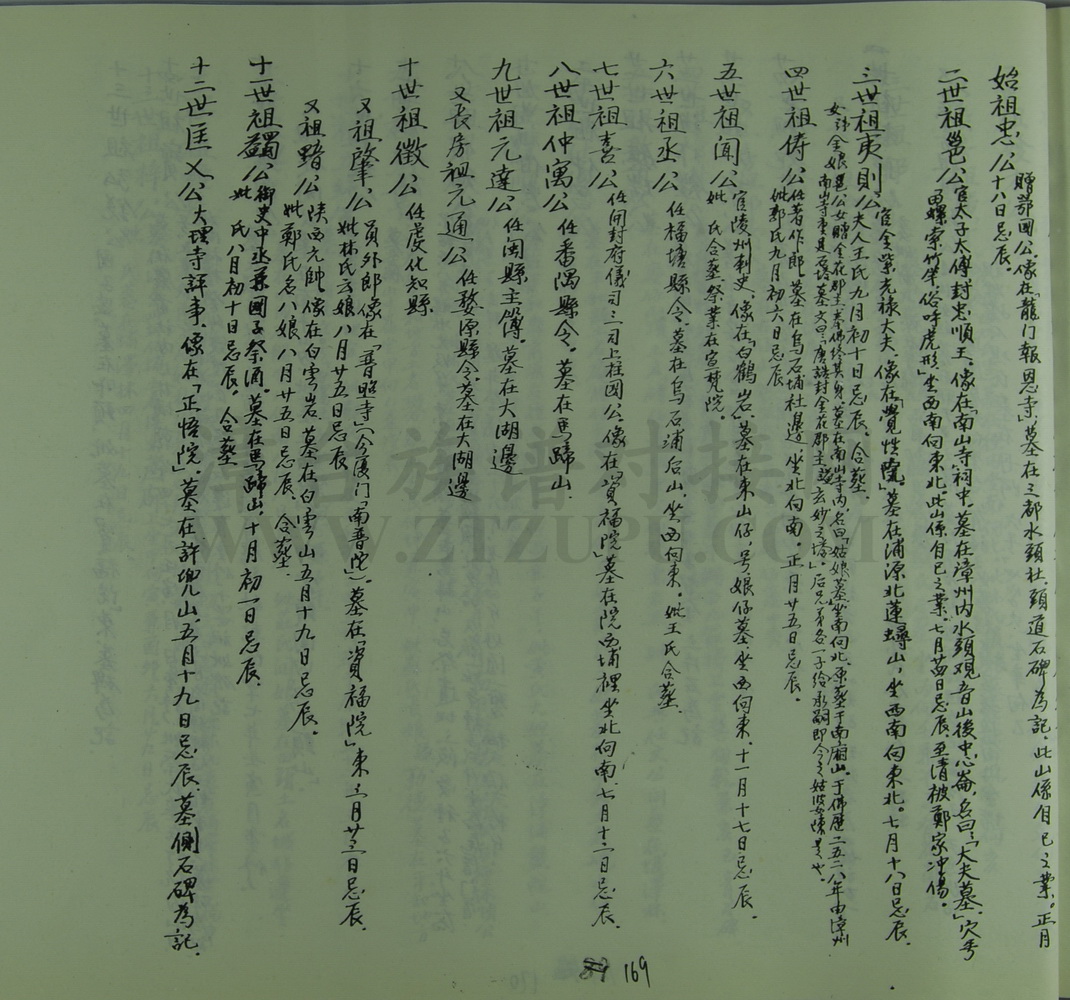 始祖忠公 贈鄂國公，像在「龍门報恩寺」墓在三都水頭社，頭道石碑為記。此山係自己之業。正月
十八日忌辰。
二世祖邕公 官太子太傅封忠順王、像在「南山寺祠中。墓在漳州内水頭观音山後忠心崙，名曰：「大夫墓」穴号
田螺索竹竿，俗呼虎形」坐西南向東北。此山係自己之業。七月廿四日忌辰。至清被鄭家冲傷。
三世祖夷則公 官金紫光祿大夫、像在「覺性院」墓在浦源北蓮蟳山，坐西南向東北。七月十八日忌辰。
夫人王氏九月初十日忌辰。合葬。
女諱金娘 公女贈金花郡主奉佛終其身。墓在南山寺内，名曰「姑娘墓」坐南向北。原葬于南廂山。于佛歷二五二八年由漳州
南山寺重 墓文曰：「唐誥封金花郡主 玄妙之塔」后兄弟名一子给承嗣即今之姑婆 陳是也。
四世祖俦公 任著作郎，墓在烏石埔社邊，坐北向南。正月廿五日忌辰。
妣郭氏九月初六日忌辰
五世祖闻公 官陵州刺史，像在「白鶴岩」墓在東山仔，号娘仔墓，坐西向東。十一月十七日忌辰。
妣 氏合葬。祭業在宣梵院。
六世祖丞公 任福塘縣令。墓在烏石浦后山，坐西向東。妣王氏合葬
七世祖喜公 任開封府儀司三司上柱國公，像在「資福院」墓在院西埔裡坐北向南、七月十二日忌辰。
八世祖仲寓公 任番隅縣令。墓在馬蹄山
九世祖元達公 任闽縣主簿。墓在大湖邊
又長房祖元通公 任婺源縣令。墓在大湖邊
十世祖徵公 任虔化知縣
又祖肇公 員外郎像在「普照寺」（今廈门「南普陀」）。墓在「資福院」東 三月廿三日忌辰。
妣林氏六娘八月廿五日忌辰
又祖黯公 陝西元帥、像在白雲岩 墓在白雲山五月十九日忌辰。
妣鄭氏名八娘八月廿五日忌辰、合葬
十一世祖蠲公 御史中丞兼國子祭酒。墓在馬蹄山、十月初一日忌辰、
妣 氏八月初十日忌辰、合葬
十二世匡乂公 大理寺評事、像在「正悟院」。墓在許兜山、五月十九日忌辰 墓側石碑為記.
169